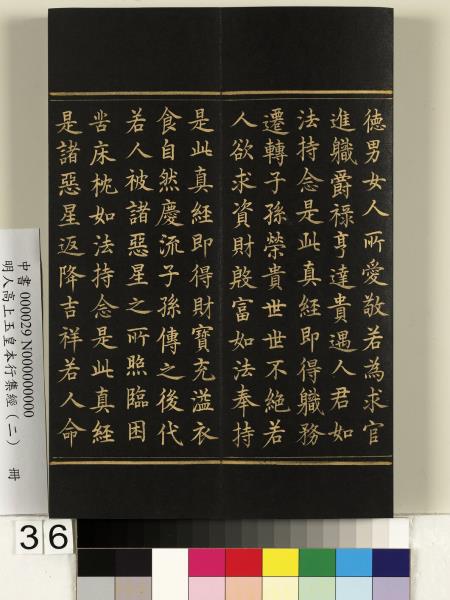 德男女人所愛敬若為求官
進軄爵祿亨達貴遇人君如
法持念是此真經即得軄務
遷轉子孫榮貴世世不絕若
人欲求資財殷富如法奉持
是此真經即得財寶充溢衣
食自然慶流子孫傳之後代
若人被諸惡星之所照臨困
苦床枕如法持念是此真經
是諸惡星返降吉祥若人命
中書 000029 N000000000
明人高上玉皇本行集經(二) 冊
36